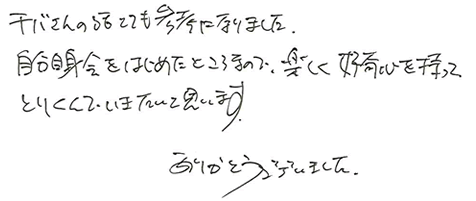 千バさんの話とても参考になりました。
自分自身会をはじめたところなので、楽しく好奇心を持って
とりくんでいきたいと思います。
ありがとうございました。